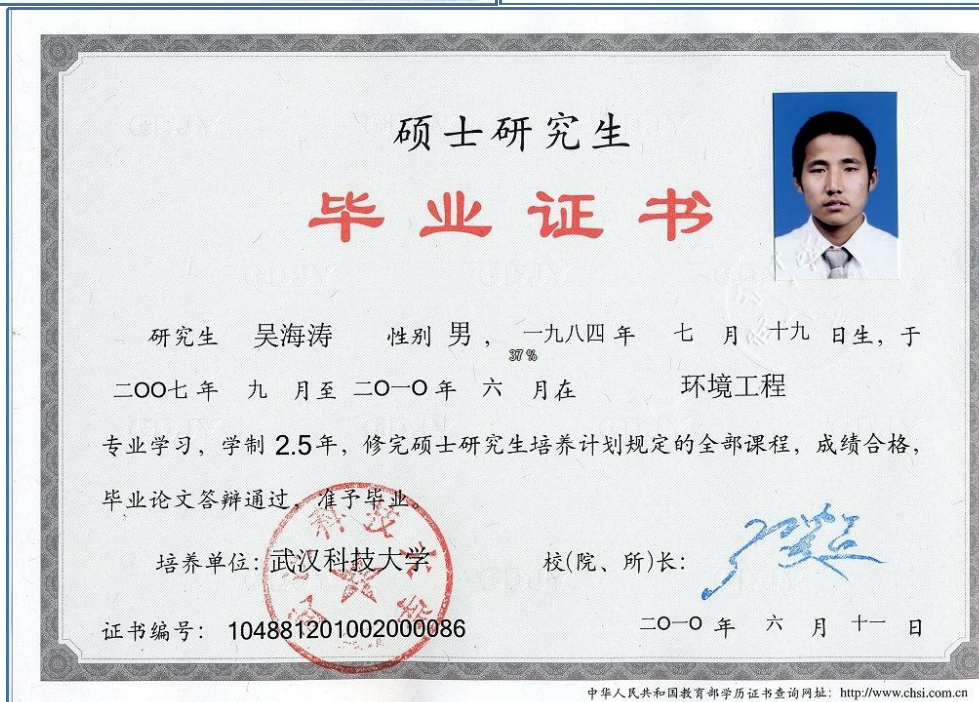 硕士研究生
毕业证书
研究生 吴海涛 性别 男 ， 一九八四 年 七 月 十九 日生，于
37 %
二OO七 年 九 月至 二O一O 年 六 月在 环境工程
专业学习，学制 2.5年，修完硕士研究生培养计划规定的全部课程，成绩合格，
毕业论文答辩通过，准予毕业。
培养单位：武汉科技大学 校(院、所)长：
证书编号： 104881201002000086 二O一O 年 六 月 十一 日
中华人民共和国教育部学历证书查询网址：http://www.chsi.com.cn